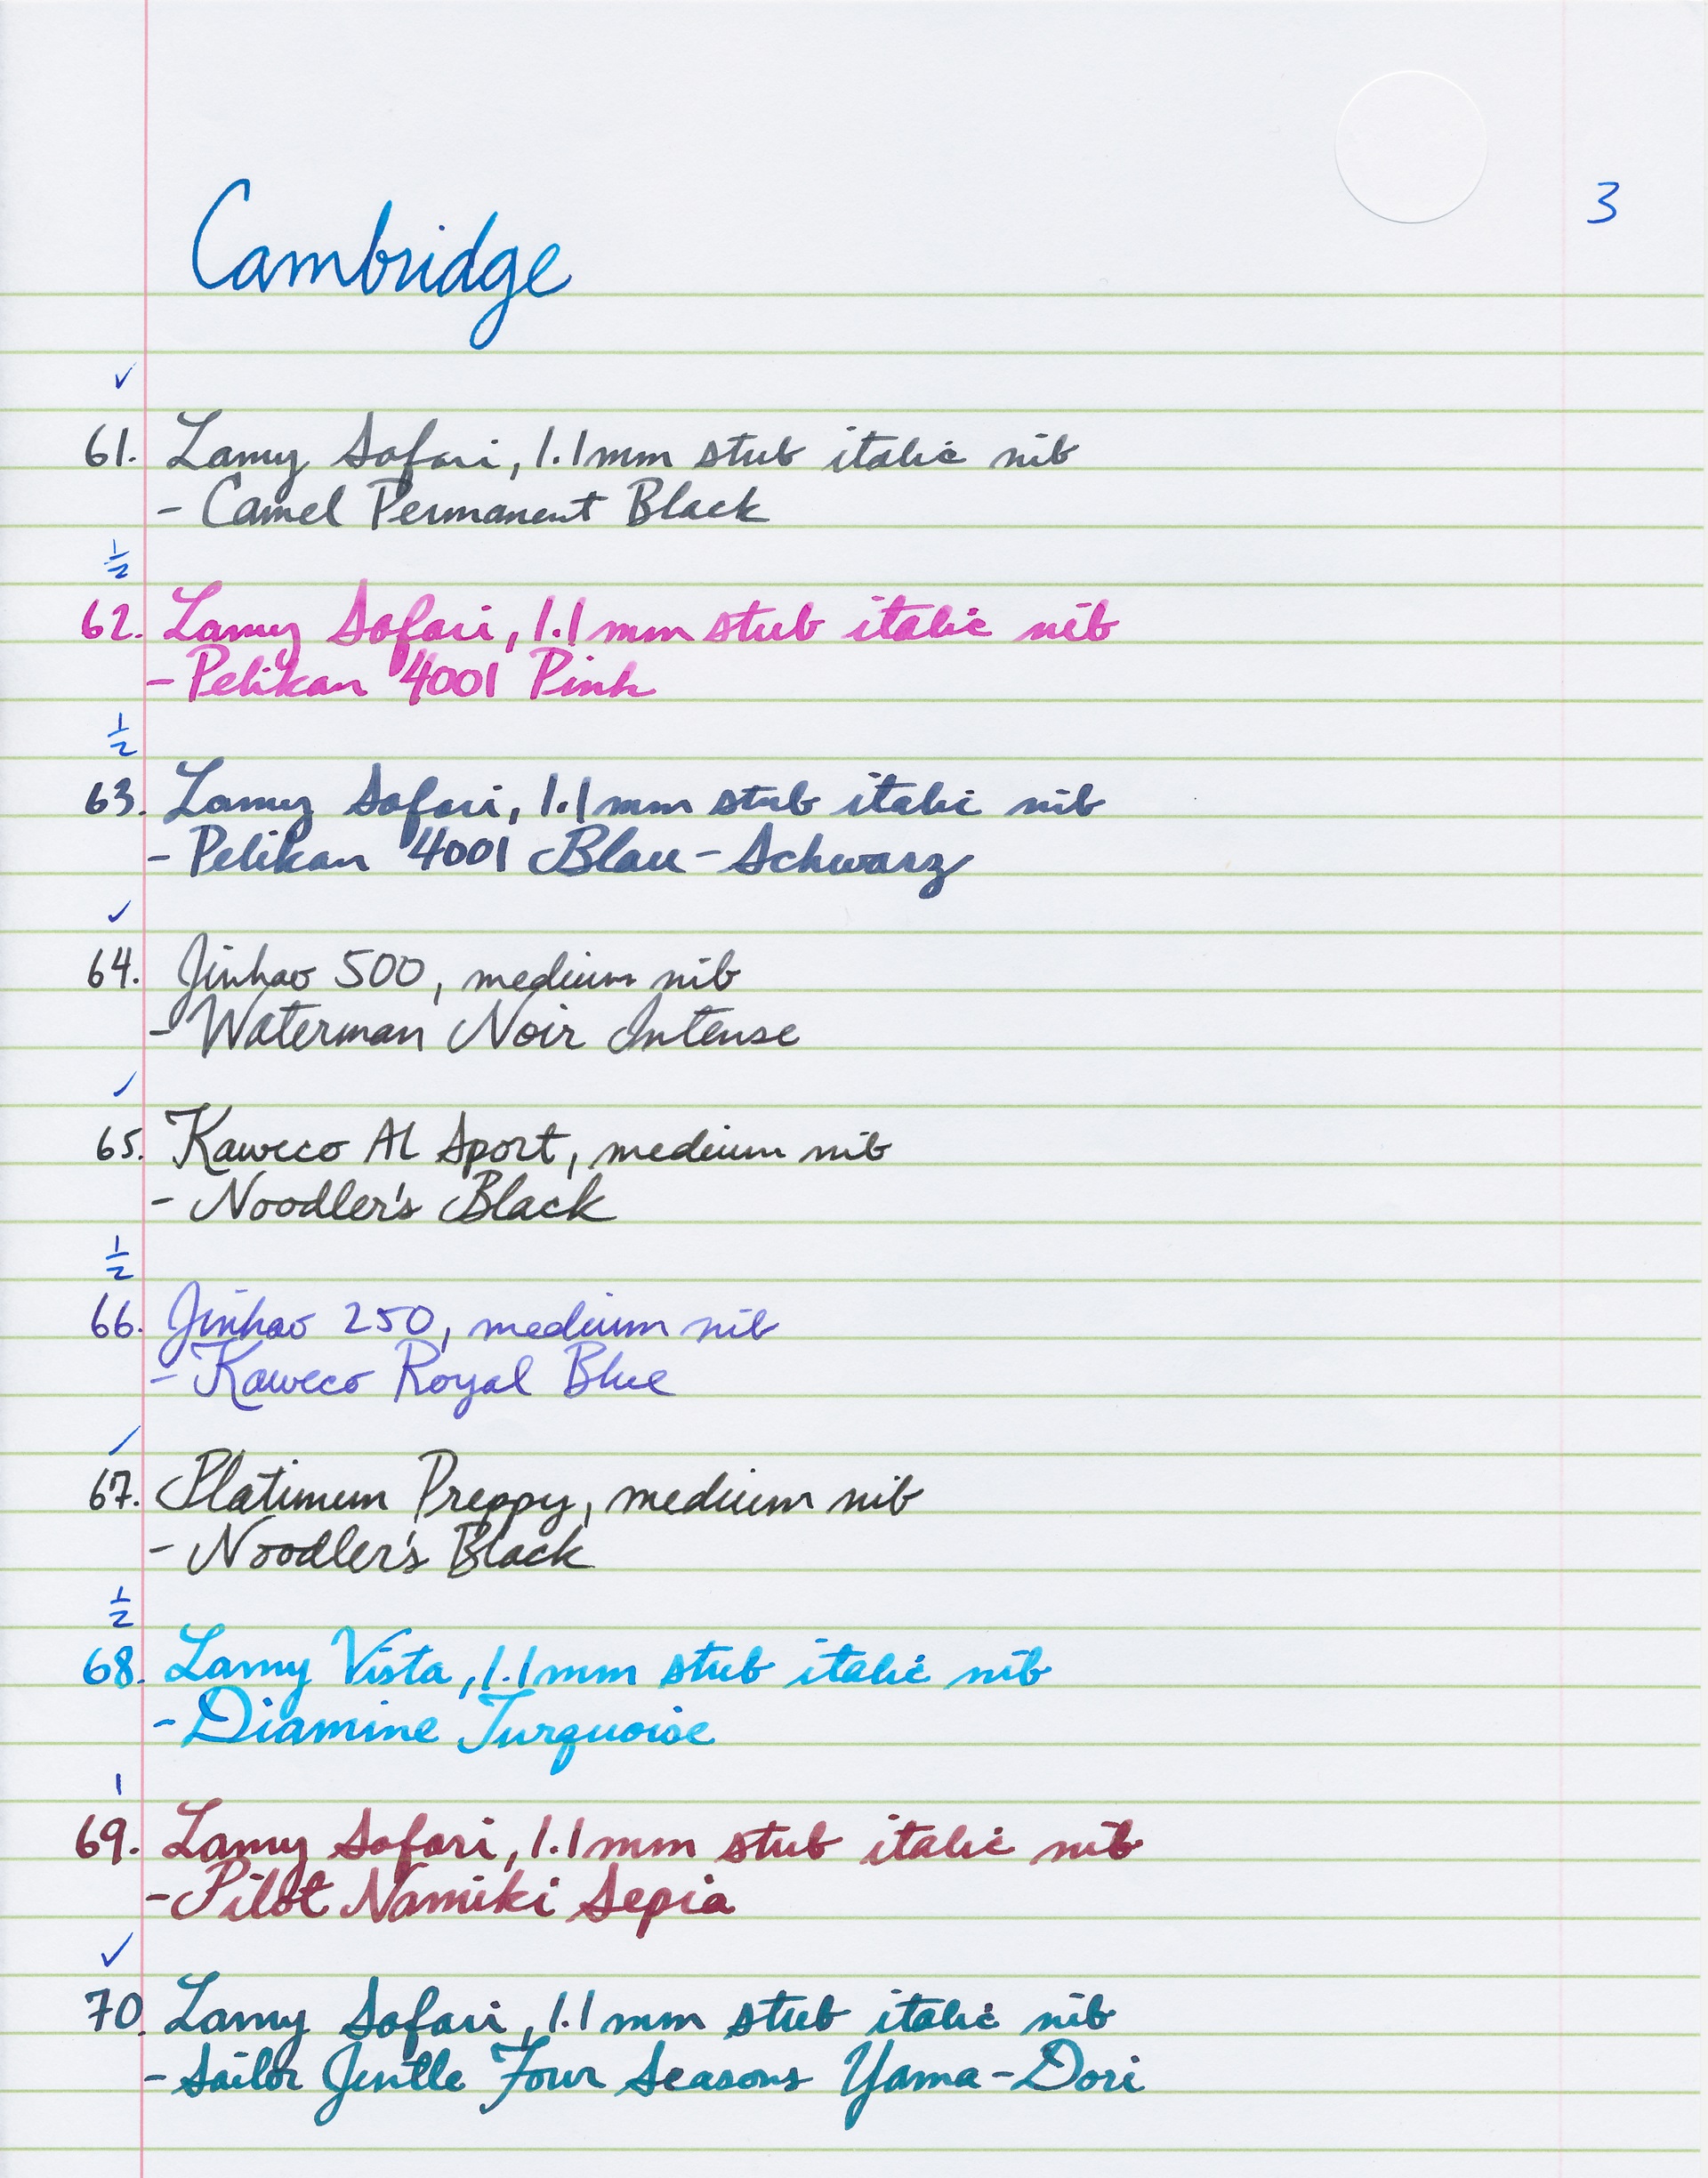 3
Cambridge
✓
61. Lamy Safari, 1.1mm stub italic nib
- Camel Permanent Black
1/2
62. Lamy Safari, 1.1mm stub italic nib
- Pelikan 4001 Pink
1/2
63. Lamy Safari, 1.1mm stub italic nib
- Pelikan 4001 Blau-Schwarz
✓
64. Jinhao 500, medium nib
- Waterman Noir Intense
✓
65. Kaweco Al Sport, medium nib
- Noodler's Black
1/2
66. Jinhao 250, medium nib
- Kaweco Royal Blue
✓
67. Platinum Preppy, medium nib
- Noodler's Black
1/2
68. Lamy Vista, 1.1mm stub italic nib
- Diamine Turquoise
1
69. Lamy Safari, 1.1mm stub italic nib
- Pilot Namiki Sepia
✓
70. Lamy Safari, 1.1mm stub italic nib
- Sailor Jentle Four Seasons Yama-Dori